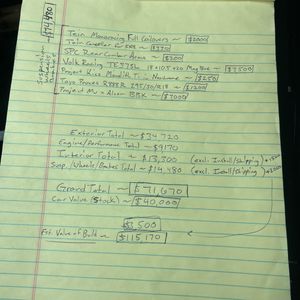 ~$14,480
Tein Monoracing Full Coilovers ~ $2000
SPC Rear Camber Arms ~ $300
Volk Racing TE37SL 18x10.5 +20 Mag Blue ~ $3500
~ $250
Toyo Proxes R888R 295/30/R18 ~ $1200
Project Mu BBK ~ $7000
Exterior Total ~ $34,720
Engine/Performance Total ~ $9170
Interior Total ~ $13,300 (excl. Install/Shipping)
Susp./Wheels/Brakes Total ~ $14,480 (excl. Install/Shipping)
Grand Total ~ $71,670
Car Value (Stock) ~ $40,000
$3,500
Est. Value of Build ~ $115,170